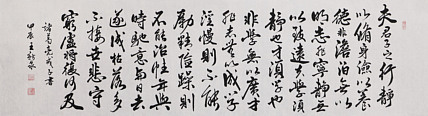 夫君子之行靜
以脩身儉以養
德非澹泊無以
明志非寧靜無
以致遠夫學須
靜也才須學也
非學無以廣才
非志無以成學
淫慢則不能
勵精險躁則
不能治性年與
時馳意與日去
遂成枯落多
不接世悲守
窮廬將復何及
諸葛亮戒子書